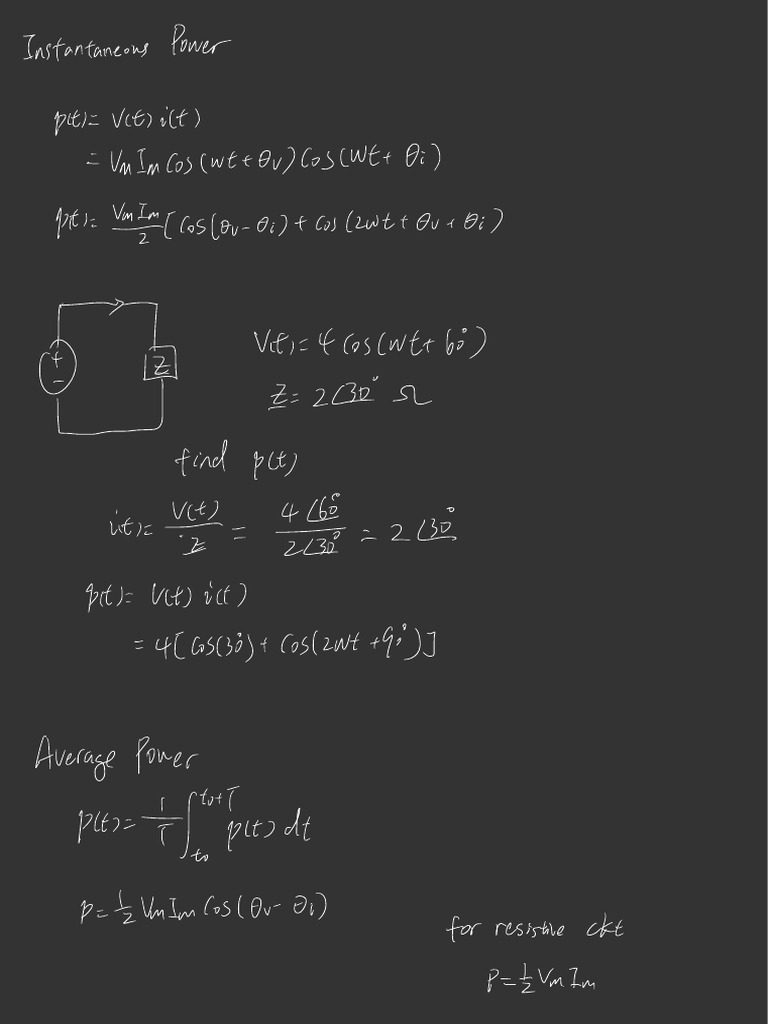 Instantaneous Power
p(t)= V(t) i(t)
= Vm Im Cos(wt + θv) Cos(wt + θi)
p(t)= Vm Im/2 [Cos(θv - θi) + cos(2wt + θv + θi)
+
-
Z
V(t)= 4 Cos(wt + 60°)
Z= 2∠30° Ω
find p(t)
i(t)= V(t)/Z = 4∠60°/2∠30° = 2∠30°
p(t)= V(t) i(t)
= 4[Cos(30°) + Cos(2wt + 90°)]
Average Power
p(t)= 1/T ∫_to^to+T p(t) dt
P= 1/2 Vm Im Cos(θv - θi)
for resistive ckt
P= 1/2 Vm Im